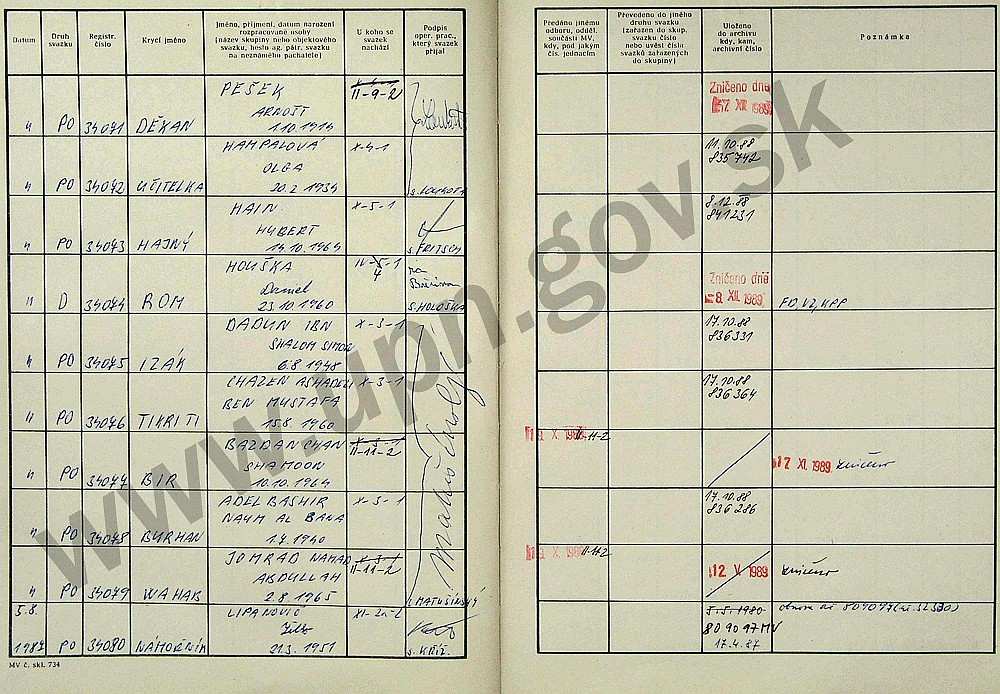 Datum
Druh svazku
Registr. číslo
Krycí jméno
Jméno, příjmení, datum narození
rozpracované osoby
(název skupiny nebo objektového
svazku, heslo ag. pátr. svazku
na neznámého pachatele)
U koho se
svazek
nachází
Podpis
oper. prac.,
který svazek
přijal
Předáno jinému
odboru, odděl.
součásti MV,
kdy, pod jakým
čís. jednacím
Převedeno do jiného
druhu svazku
(zařazen do skup.
svazku číslo
nebo uvést čísla
svazků zařazených
do skupiny)
Uloženo
do archivu
kdy, kam,
archivní číslo
Poznámka
PEŠEK II-9-2 Zničeno dne
ARNOŠT XII 1989
" PO 34071 DĚKAN 1.10.1914
HAMPALOVÁ X-4-1 11.10.88
OLGA 835742
" PO 34072 UČITELKA 20.2.1934
HAIN X-5-1 8.12.88
HUBERT 841231
" PO 34073 HAJNÝ 14.10.1964 s. FRITSCH
HOUŠKA IV-5-1 Zničeno dne
Daniel 4 -8. XII. 1989
" D 34074 ROM 23.10.1960 S. HOLOŠKA FO, VZ, KPP
DADUN IBN X-3-1 17.10.88
SHALOM SIMON 836331
" PO 34075 IZÁK 6.8.1948
CHAZEN X-3-1 17.10.88
BEN MUSTAFA 836364
" PO 34076 TIKRITI 15.8.1960
BAZDANCHAN II-11-2 X. II-11-2
SHAMOON 17 XI. 1989 zničeno
" PO 34077 BIR 10.10.1964
ADEL BASHIR X-3-1 17.10.88
NAYM AL BANA 836286
" PO 34078 BURHAN 1.7.1940
JOMRAD NAMAD X-3-1 X. II-11-2
ABDULLAH II-11-2 12 V. 1989 zničeno
" PO 34079 WAHAB 2.8.1965 MATUŠINSKÝ
5.8. LIPANOVIČ XI-2a-2 5.5.1980
809097 MV
1987 PO 34080 NÁMOŘNÍK 21.3.1951 s. KŘÍŽ 17.4.87
MV č. skl. 734
www.upn.gov.sk